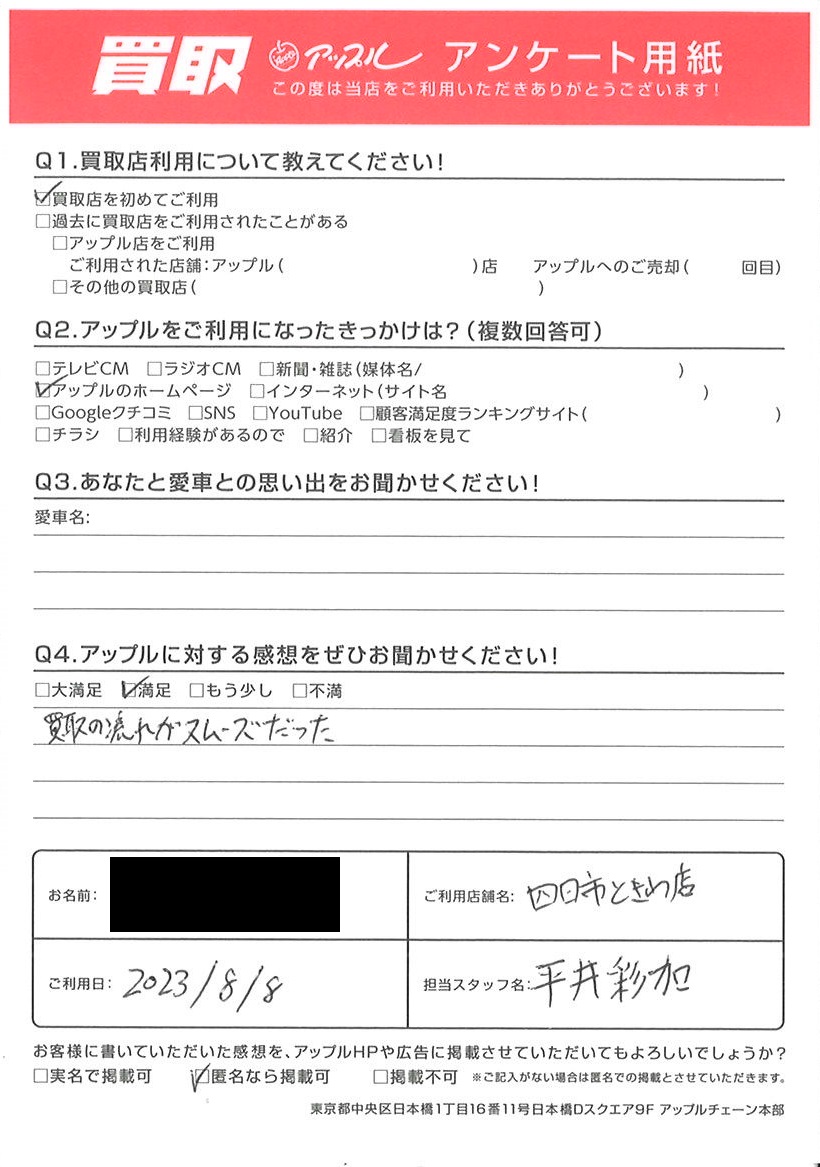 買取 アップル アンケート用紙
この度は当店をご利用いただきありがとうございます!
Q1.買取店利用について教えてください!
☑買取店を初めてご利用
□過去に買取店をご利用されたことがある
□アップル店をご利用
ご利用された店舗:アップル( )店 アップルへのご売却( 回目)
□その他の買取店( )
Q2.アップルをご利用になったきっかけは?(複数回答可)
□テレビCM □ラジオCM □新聞・雑誌(媒体名/ )
☑アップルのホームページ □インターネット(サイト名 )
□Googleクチコミ □SNS □YouTube □顧客満足度ランキングサイト( )
□チラシ □利用経験があるので □紹介 □看板を見て
Q3.あなたと愛車との思い出をお聞かせください!
愛車名:
Q4.アップルに対する感想をぜひお聞かせください!
□大満足 ☑満足 □もう少し □不満
買取の流れがスムーズだった
お名前:
ご利用店舗名: 四日市ときわ店
ご利用日: 2023/8/8
担当スタッフ名: 平井彩加
お客様に書いていただいた感想を、アップルHPや広告に掲載させていただいてもよろしいでしょうか?
□実名で掲載可 ☑匿名なら掲載可 □掲載不可 ※ご記入がない場合は匿名での掲載とさせていただきます。
東京都中央区日本橋1丁目16番11号日本橋Dスクエア9F アップルチェーン本部